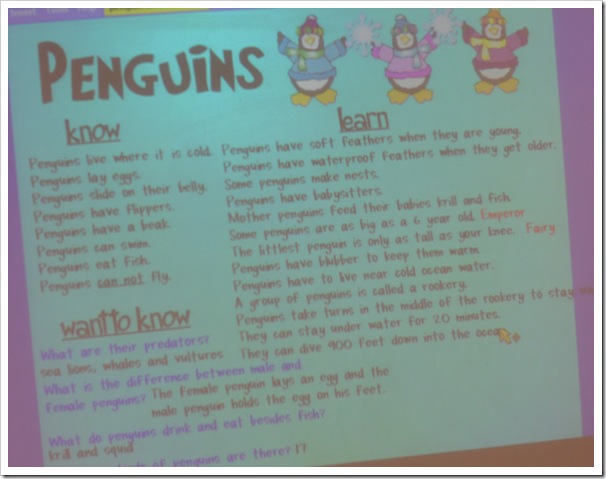 Penguins
know
Penguins live where it is cold.
Penguins lay eggs.
Penguins slide on their belly.
Penguins have flippers.
Penguins have a beak.
Penguins can swim.
Penguins eat fish.
Penguins can not fly.
learn
Penguins have soft feathers when they are young.
Penguins have waterproof feathers when they get older.
Some penguins make nests.
Penguins have babysitters.
Mother penguins feed their babies krill and fish.
Some penguins are as big as a 6 year old. Emperor
The littlest penguin is only as tall as your knee. Fairy
Penguins have blubber to keep them warm.
Penguins have to live near cold ocean water.
A group of penguins is called a rookery.
Penguins take turns in the middle of the rookery to stay
They can stay under water for 20 minutes.
They can dive 900 feet down into the
want to know
What are their predators?
sea lions, whales and vultures
What is the difference between male and
female penguins? The female penguin lays an egg and the
male penguin holds the egg on his feet.
What do penguins drink and eat besides fish?
krill and squid
of penguins are there? 17